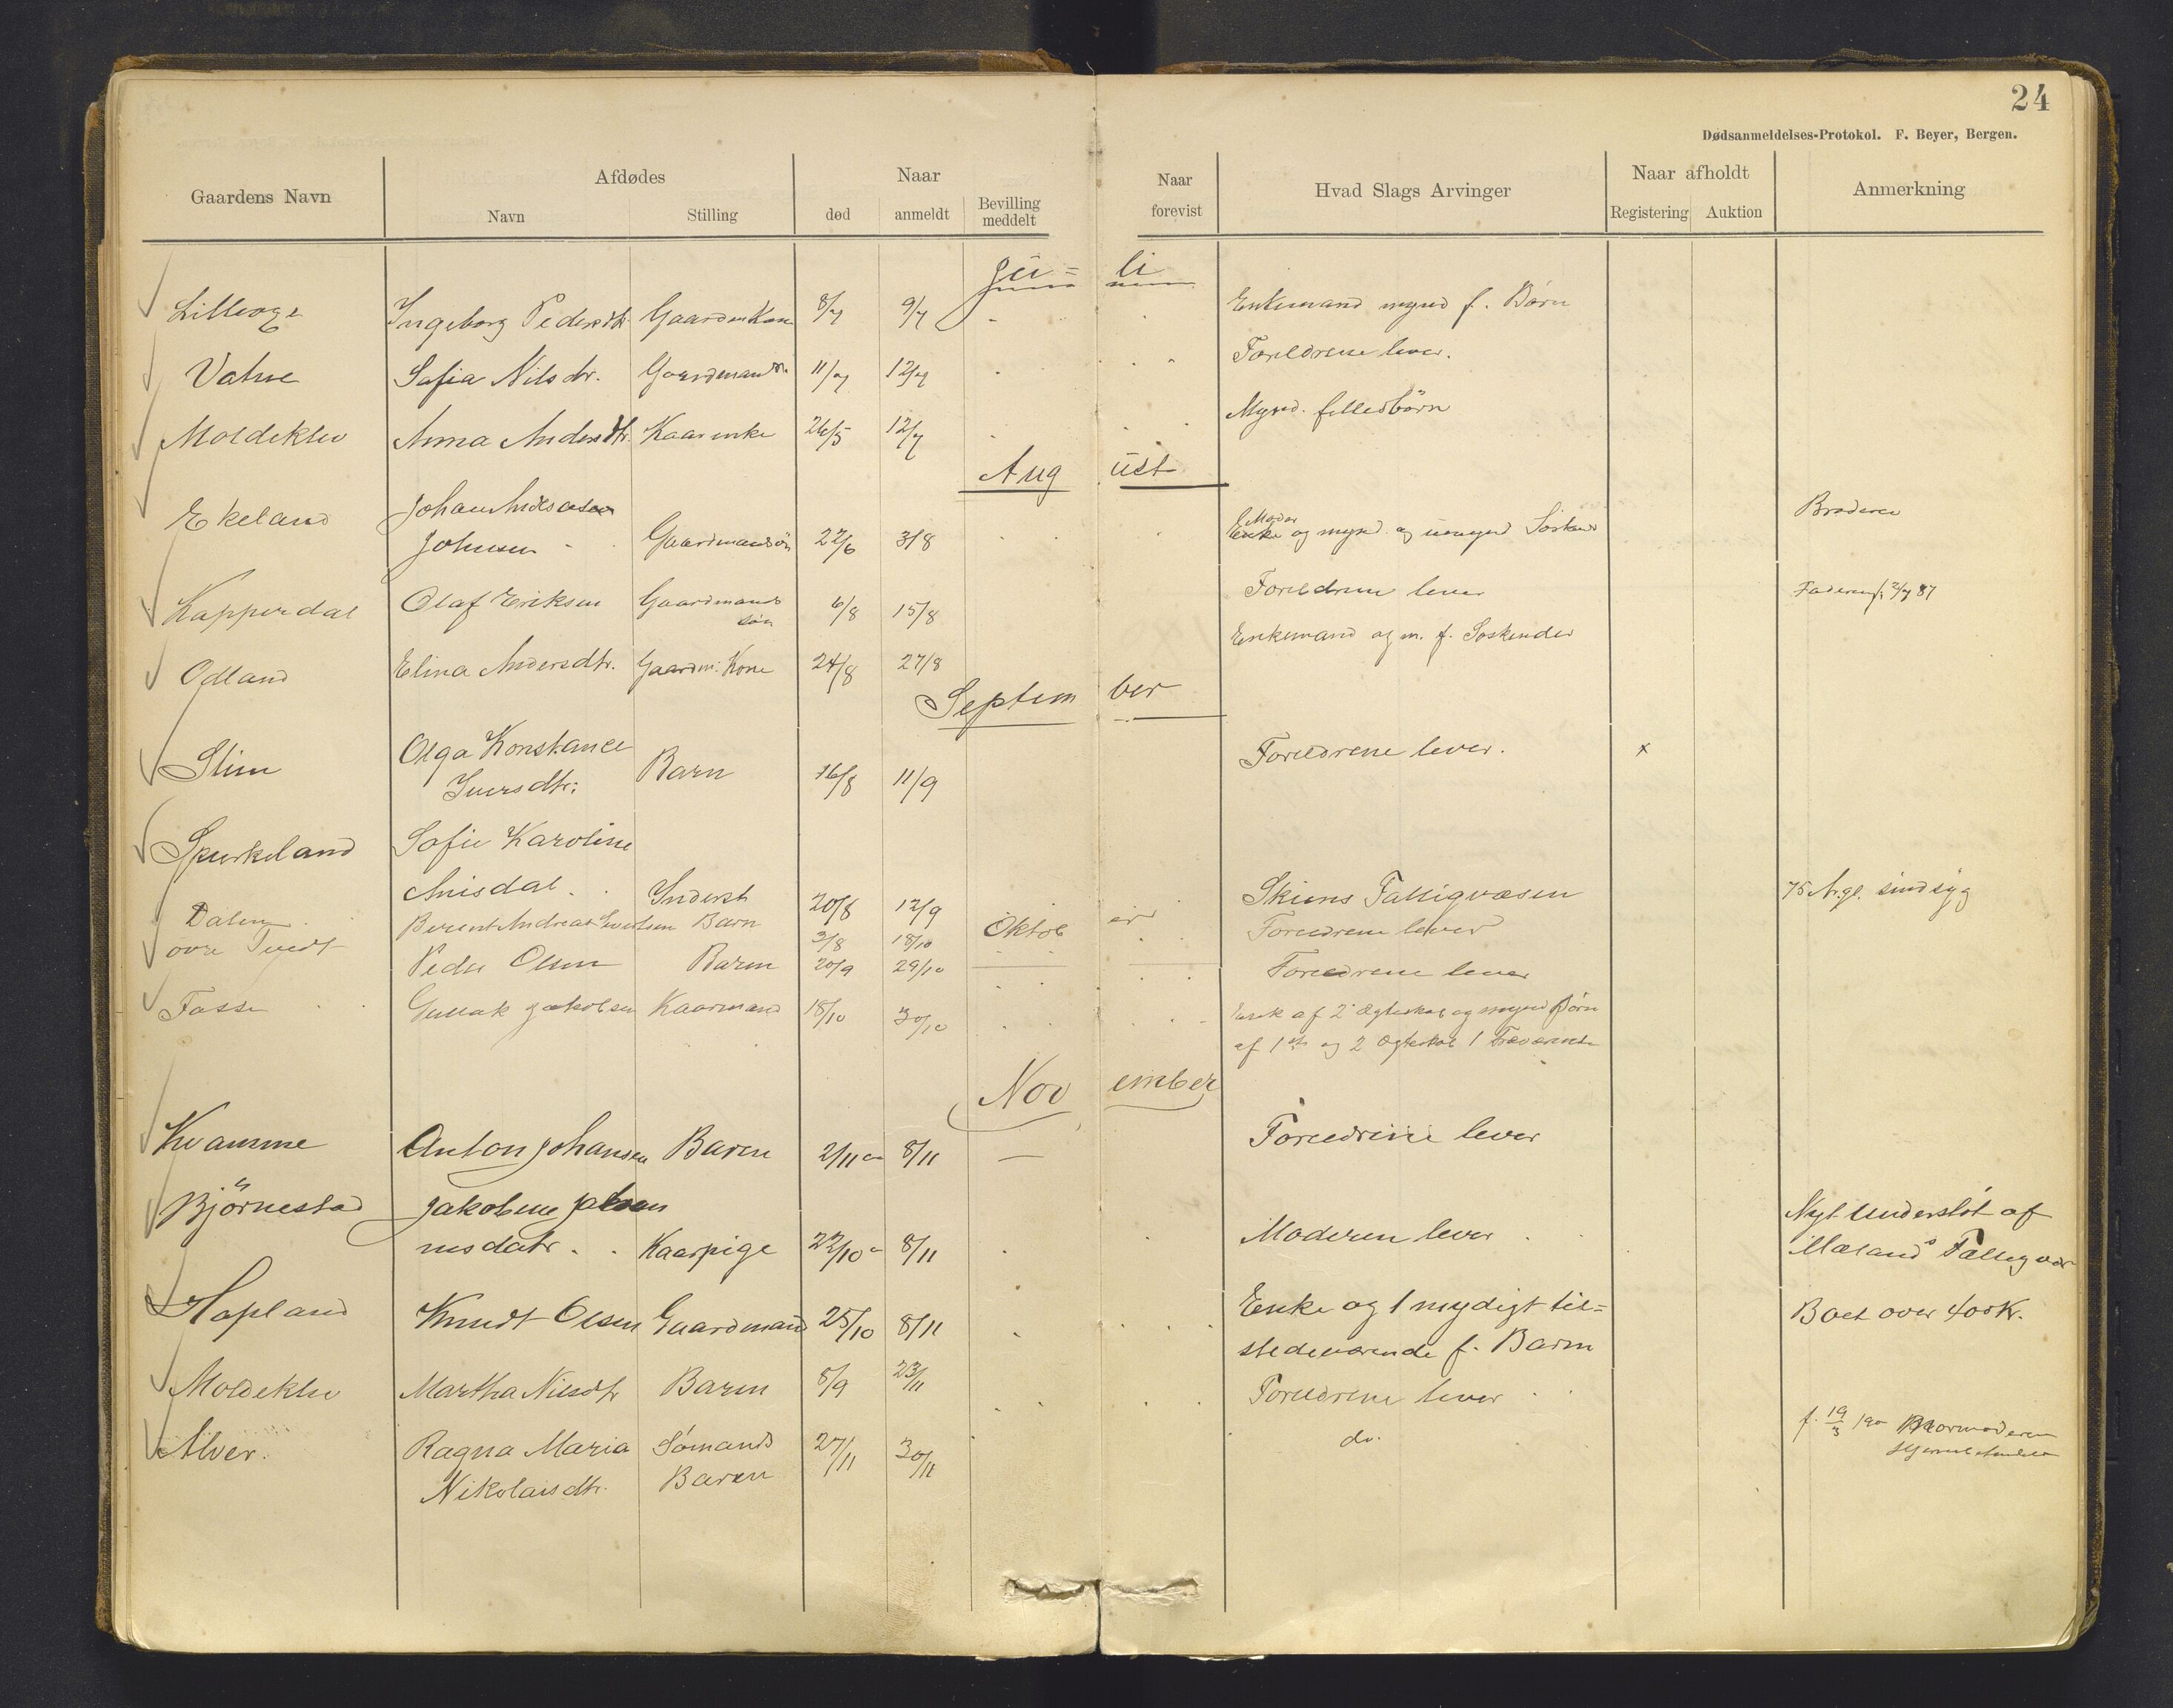 24
Dødsanmeldelses-Protokol. F. Beyer, Bergen.
Gaardens Navn
Afdødes
Navn
Stilling
Naar
død
anmeldt
Bevilling meddelt
Naar forevist
Hvad Slags Arvinger
Naar afholdt
Registering
Auktion
Anmerkning
Juli
Ingeborg Pedersdtr 8/7 9/7 Enkemand mynd f. Børn
Vatne Sofia Nilsdr. 11/7 12/7 Forældrene lever.
Moldeklev Anna Andersdtr. Kaarenke 26/5 12/7 Mynd. fællesbörn
August
Ekeland Johan Broderen
Johnsen Gaardmandsön 22/6 3/8 Moder og mynd. og umynd Söskend
Kapperdal Olaf Eriksen Gaardmands 6/8 15/8 Forældrene lever Faderen f. 2/7 87
søn
Odland Elina Andersdtr. Gaardm. Kone 24/8 27/8 Enkemand og m. f. Söskender
September
Olga Konstance
Stim Iversdtr. Barn 16/8 11/9 Forældrene lever. x
Spurkeland Sofie Karoline
Inderst 20/8 12/9 Skiens Fattigvæsen 75 Ar gl. sindsyg
Oktober
Dalen Berent Andreas Barn 3/8 18/10 Forældrene lever
övre Tvedt Peder Olsen Barn 20/9 29/10 Forældrene lever
Fosse Gullak Jakobsen Kaarmand 18/10 30/10 Enk af 2 Ægteskab og mynd Børn
af 1ste og 2 Ægteskab 1
November
Kvamme Anton Johansen Barn 2/11 8/11 Forældrene lever
Björnestad Jakobine
nesdatr. Kaarpige 22/10 8/11 Moderen lever Nyt Understöt af
Mælands Fattigvæs
Hopland Knudt Olsen Gaardmand 25/10 8/11 Enke og 1 mydigt til=
stedeværende f. Barn Boet over 400 Kr.
Moldeklev Martha Nilsdtr Barn 8/9 23/11 Forældrene lever
Alver. Ragna Maria Sömands 27/11 30/11 do. f. 19/3 190 Mormoderen
Nikolaisdtr. Barn